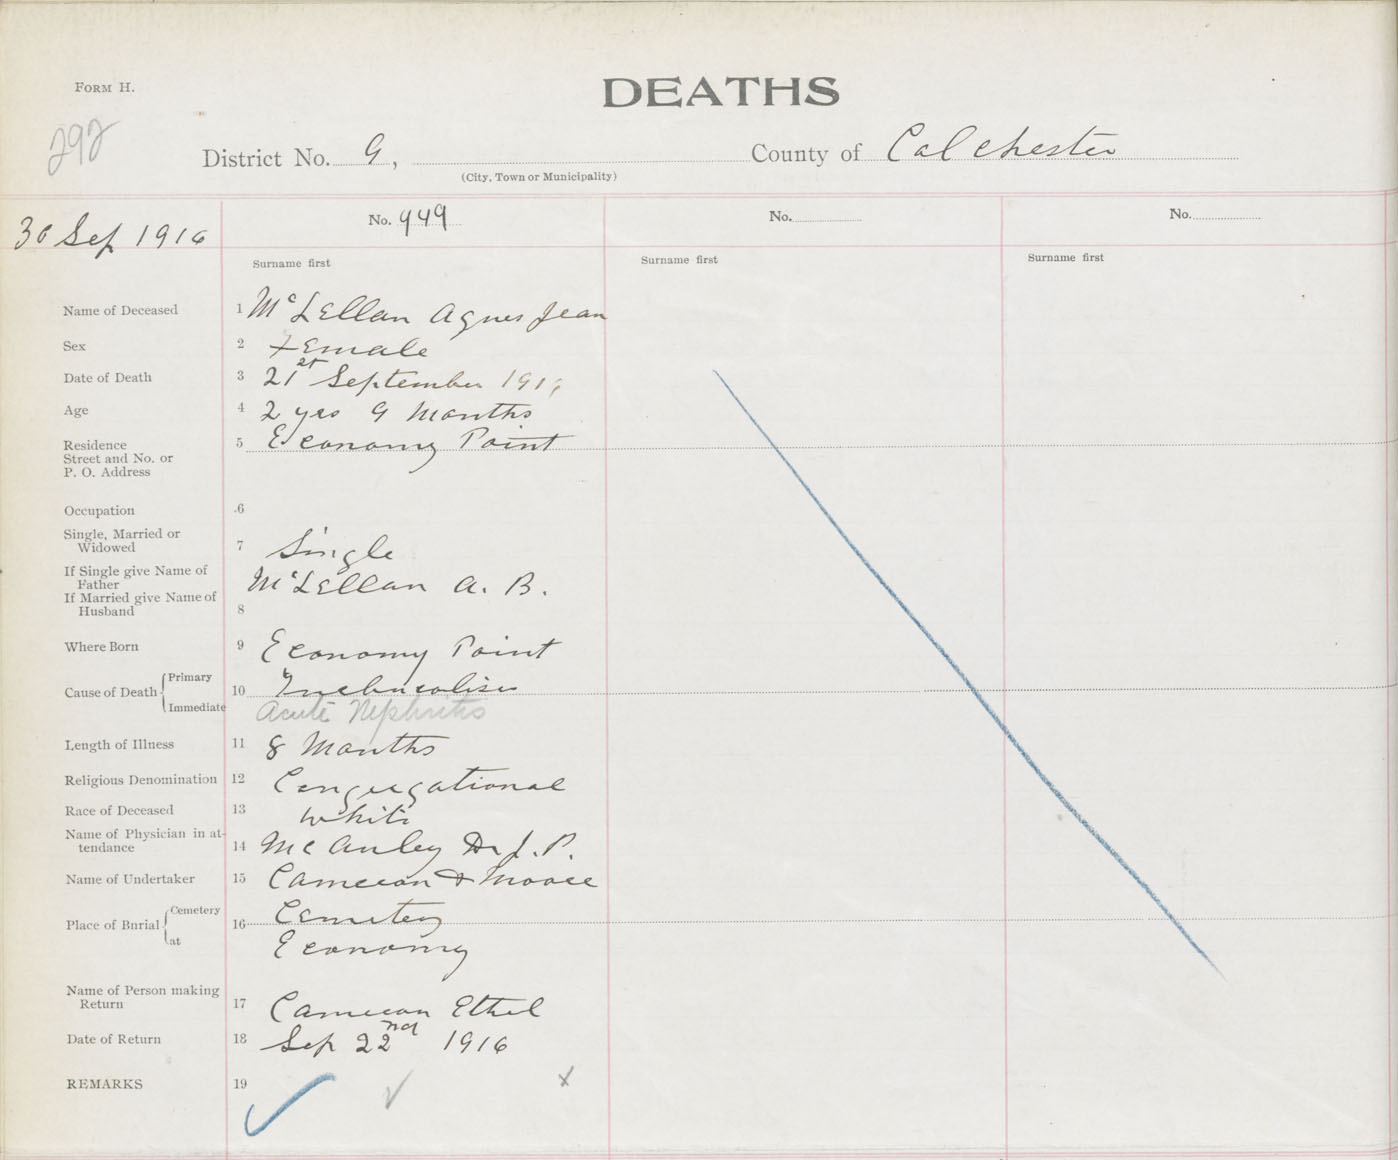 FORM H.
DEATHS
292
District No. 9, County of Colchester
(City, Town or Municipality)
30 Sep 1916
No. 949
No.
No.
Surname first
Surname first
Surname first
Name of Deceased 1 McLellan Agnes Jean
Sex 2 Female
Date of Death 3 21st September 1916
Age 4 2 yrs 9 Months
Residence 5 Economy Point
Street and No. or
P. O. Address
Occupation 6
Single, Married or
Widowed 7 Single
If Single give Name of
Father McLellan A. B.
If Married give Name of
Husband 8
Where Born 9 Economy Point
Cause of Death Primary 10
Immediate Acute Nephritis
Length of Illness 11 8 Months
Religious Denomination 12 Congregational
Race of Deceased 13 White
Name of Physician in at-
tendance 14 McAuley Dr J. P.
Name of Undertaker 15 Cameron & Moore
Place of Burial Cemetery 16 Cemetery
at Economy
Name of Person making
Return 17 Cameron Ethel
Date of Return 18 Sep 22nd 1916
REMARKS 19